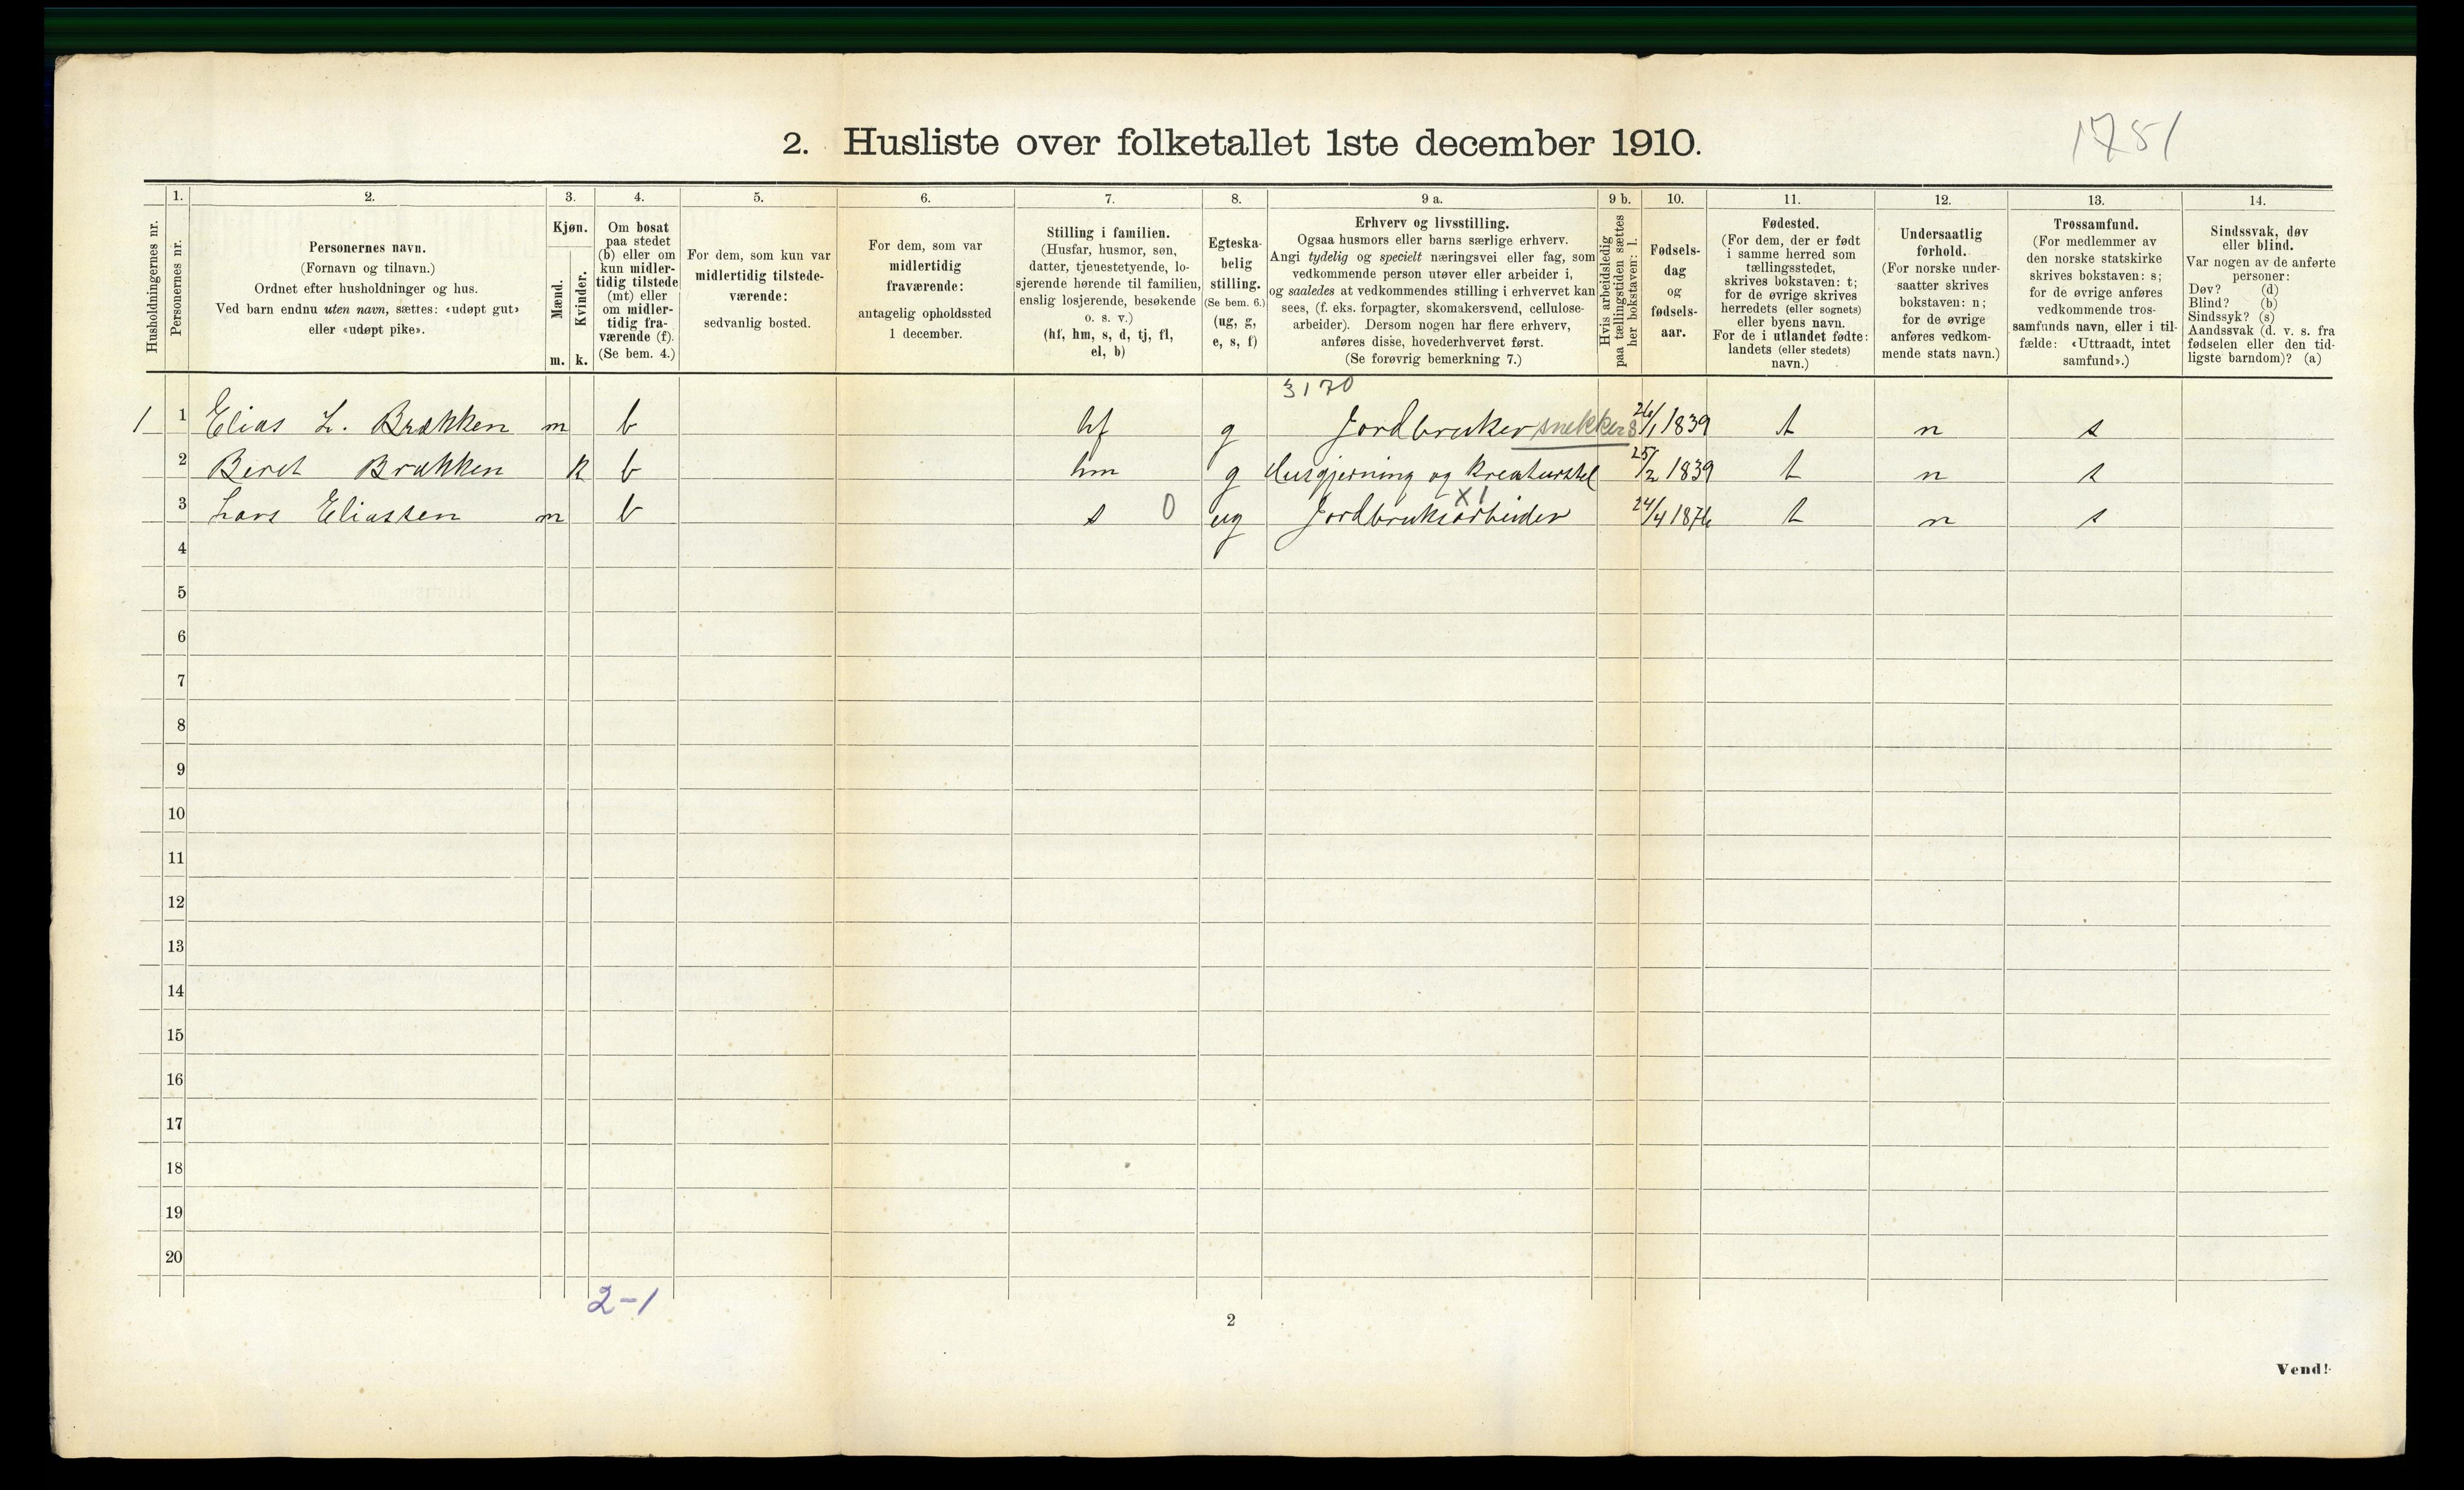 2. Husliste over folketallet 1ste december 1910.
1751
Husholdningernes nr.
1.
Personernes nr.
2.
Personernes navn.
(Fornavn og tilnavn.)
Ordnet efter husholdninger og hus.
Ved barn endnu uten navn, sættes: «udøpt gut»
eller «udøpt pike».
3.
Kjøn.
Mænd.
Kvinder.
m. k.
4.
Om bosat
paa stedet
(b) eller om
kun midler-
tidig tilstede
(mt) eller
om midler-
tidig fra-
værende (f).
(Se bem. 4.)
5.
For dem, som kun var
midlertidig tilstede-
værende:
sedvanlig bosted.
6.
For dem, som var
midlertidig
fraværende:
antagelig opholdssted
1 december.
7.
Stilling i familien.
(Husfar, husmor, søn,
datter, tjenestetyende, lo-
sjerende hørende til familien,
enslig losjerende, besøkende
o. s. v.)
(hf, hm, s, d, tj, fl,
el, b)
8.
Egteska-
belig
stilling.
(Se bem. 6.)
(ug, g,
e, s, f)
9 a.
Erhverv og livsstilling.
Ogsaa husmors eller barns særlige erhverv.
Angi tydelig og specielt næringsvei eller fag, som
vedkommende person utøver eller arbeider i,
og saaledes at vedkommendes stilling i erhvervet kan
sees, (f. eks. forpagter, skomakersvend, cellulose-
arbeider). Dersom nogen har flere erhverv,
anføres disse, hovederhvervet først.
(Se forøvrig bemerkning 7.)
9 b.
Hvis arbeidsledig
paa tællingstiden sættes
her bokstaven: l.
10.
Fødsels-
dag
og
fødsels-
aar.
11.
Fødested.
(For dem, der er født
i samme herred som
tællingsstedet,
skrives bokstaven: t;
for de øvrige skrives
herredets (eller sognets)
eller byens navn.
For de i utlandet fødte:
landets (eller stedets)
navn.)
12.
Undersaatlig
forhold.
(For norske under-
saatter skrives
bokstaven: n;
for de øvrige
anføres vedkom-
mende stats navn.)
13.
Trossamfund.
(For medlemmer av
den norske statskirke
skrives bokstaven: s;
for de øvrige anføres
vedkommende tros-
samfunds navn, eller i til-
fælde: «Uttraadt, intet
samfund».)
14.
Sindssvak, døv
eller blind.
Var nogen av de anførte
personer:
Døv? (d)
Blind? (b)
Sindssyk? (s)
Aandssvak (d. v. s. fra
fødselen eller den tid-
ligste barndom)? (a)
3170
1 1 Elias L. Brækken m b hf g Jordbruker snekker 8 26/1 1839 t n s
2 Beret Brækken k b hm g Husgjerning og kreaturstel 25/2 1839 t n s
X 1
3 Lars Eliassen m b s 0 ug Jordbruksarbeider 24/4 1876 t n s
4
5
6
7
8
9
10
11
12
13
14
15
16
17
18
19
20
2-1
2
Vend!